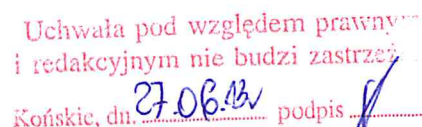 Uchwała pod względem prawny
i redakcyjnym nie budzi zastrzeż
Końskie, dn. 27.06.13r podpis